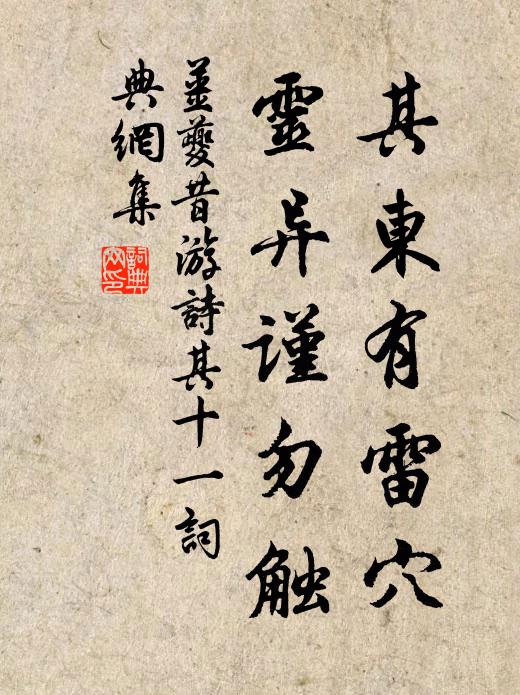 其東有雷穴
靈异謹勿触
姜夔昔游詩其十一詞
典網集
詞典
网印